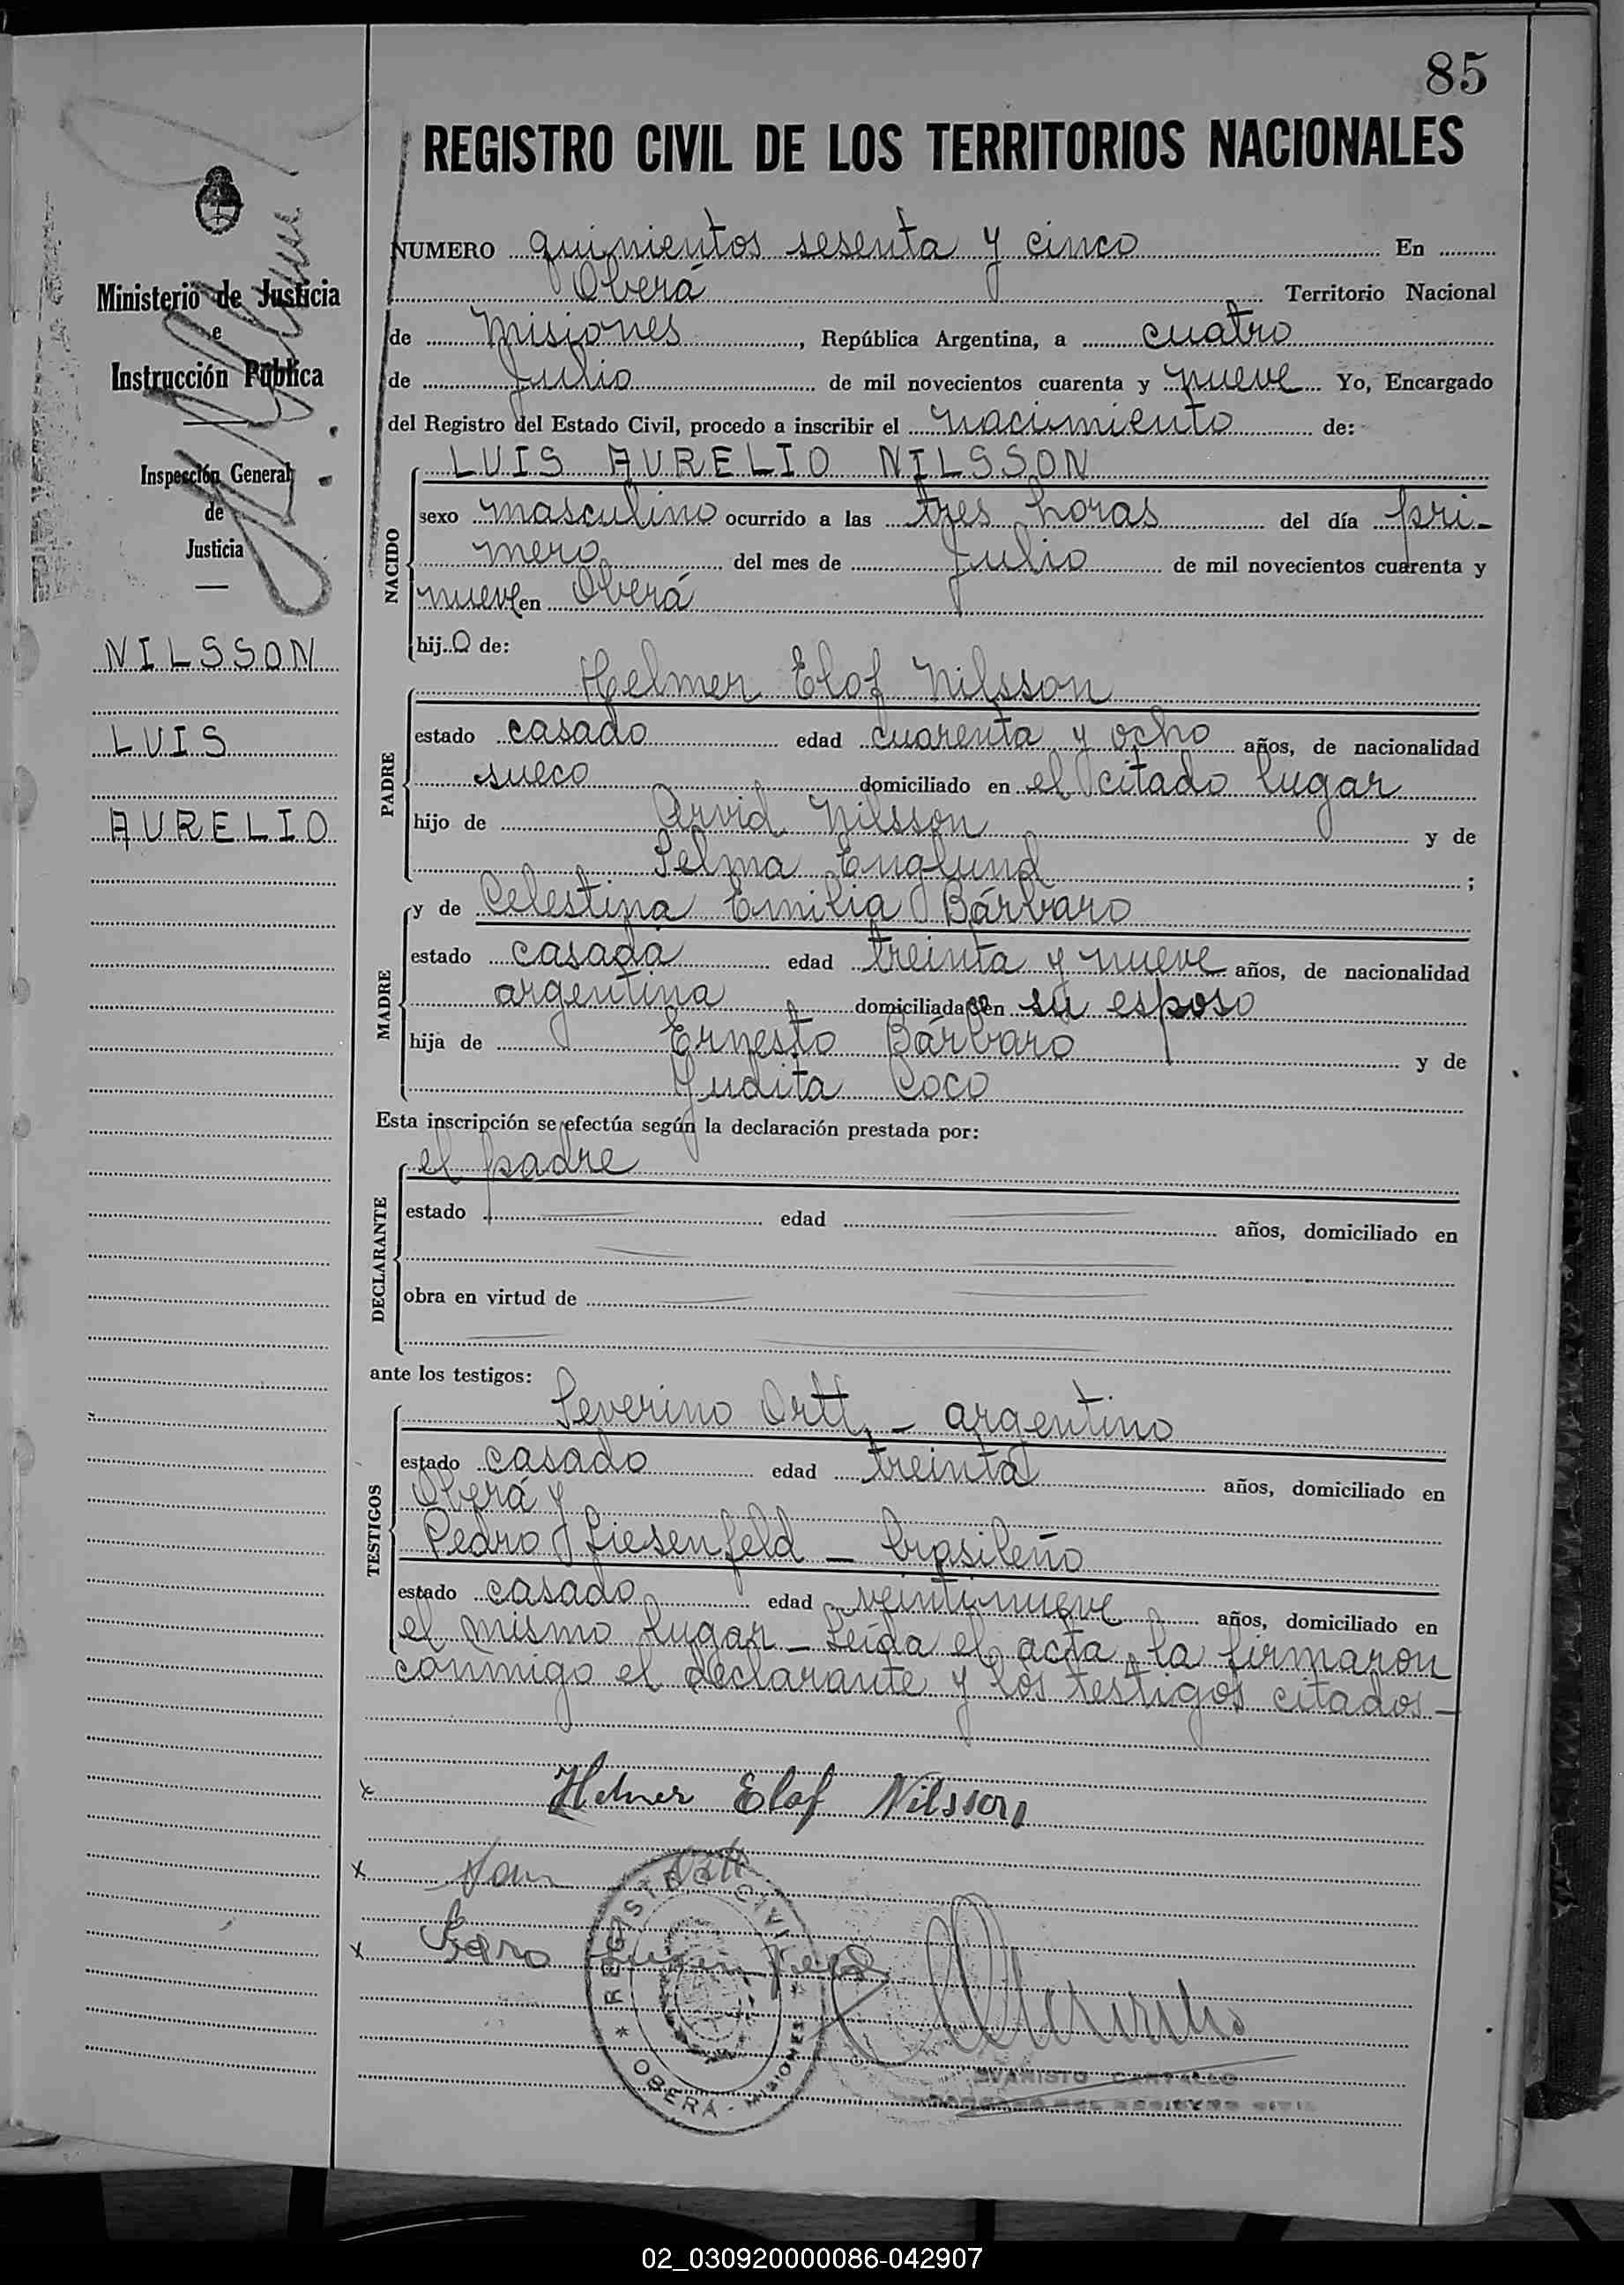 85
REGISTRO CIVIL DE LOS TERRITORIOS NACIONALES
Ministerio de Justicia
e
Instrucción Pública
Inspección General
de
Justicia
NILSSON
LUIS
AURELIO
NUMERO quinientos sesenta y cinco En
Oberá Territorio Nacional
de Misiones, República Argentina, a cuatro
de Julio de mil novecientos cuarenta y nueve Yo, Encargado
del Registro del Estado Civil, procedo a inscribir el nacimiento de:
NACIDO
LUIS AURELIO NILSSON
sexo masculino ocurrido a las tres horas del día pri-
mero del mes de Julio de mil novecientos cuarenta y
nueve en Oberá
hijo de:
PADRE
Helmer Elof Nilsson
estado casado edad cuarenta y ocho años, de nacionalidad
sueco domiciliado en el citado lugar
hijo de Arvid Nilsson y de
Selma Englund ;
MADRE
y de Celestina Emilia Bárbaro
estado casada edad treinta y nueve años, de nacionalidad
argentina domiciliada con su esposo
hija de Ernesto Bárbaro y de
Judita Coco
Esta inscripción se efectúa según la declaración prestada por:
DECLARANTE
el padre
estado edad años, domiciliado en
obra en virtud de
ante los testigos:
TESTIGOS
Severino Ortt - argentino
estado casado edad treinta años, domiciliado en
Oberá y
Pedro Liesenfeld - brasileño
estado casado edad veintinueve años, domiciliado en
el mismo lugar - Leída el acta, la firmaron
conmigo el declarante y los testigos citados -
x Helmer Elof Nilsson
x Ortt
x Pedro
REGISTRO CIVIL
OBERÁ - MISIONES
EVARISTO
REGISTRO CIVIL
02_030920000086-042907